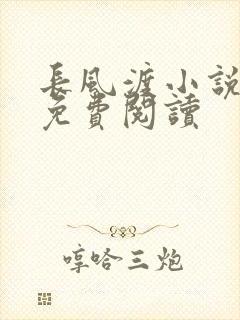 長風渡小說
免費閱讀
哼哈三炮